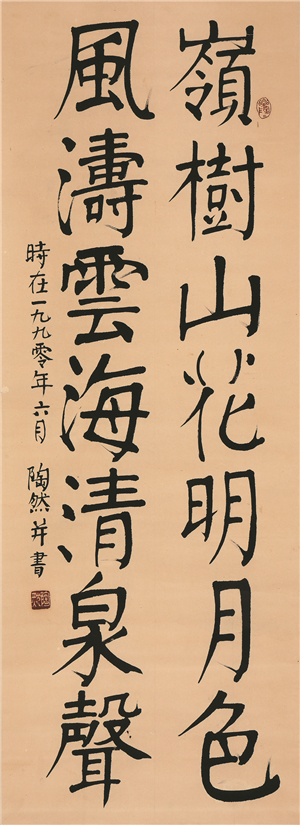 嶺樹山花明月色
風濤雲海清泉聲
時在一九九零年六月 陶然并書